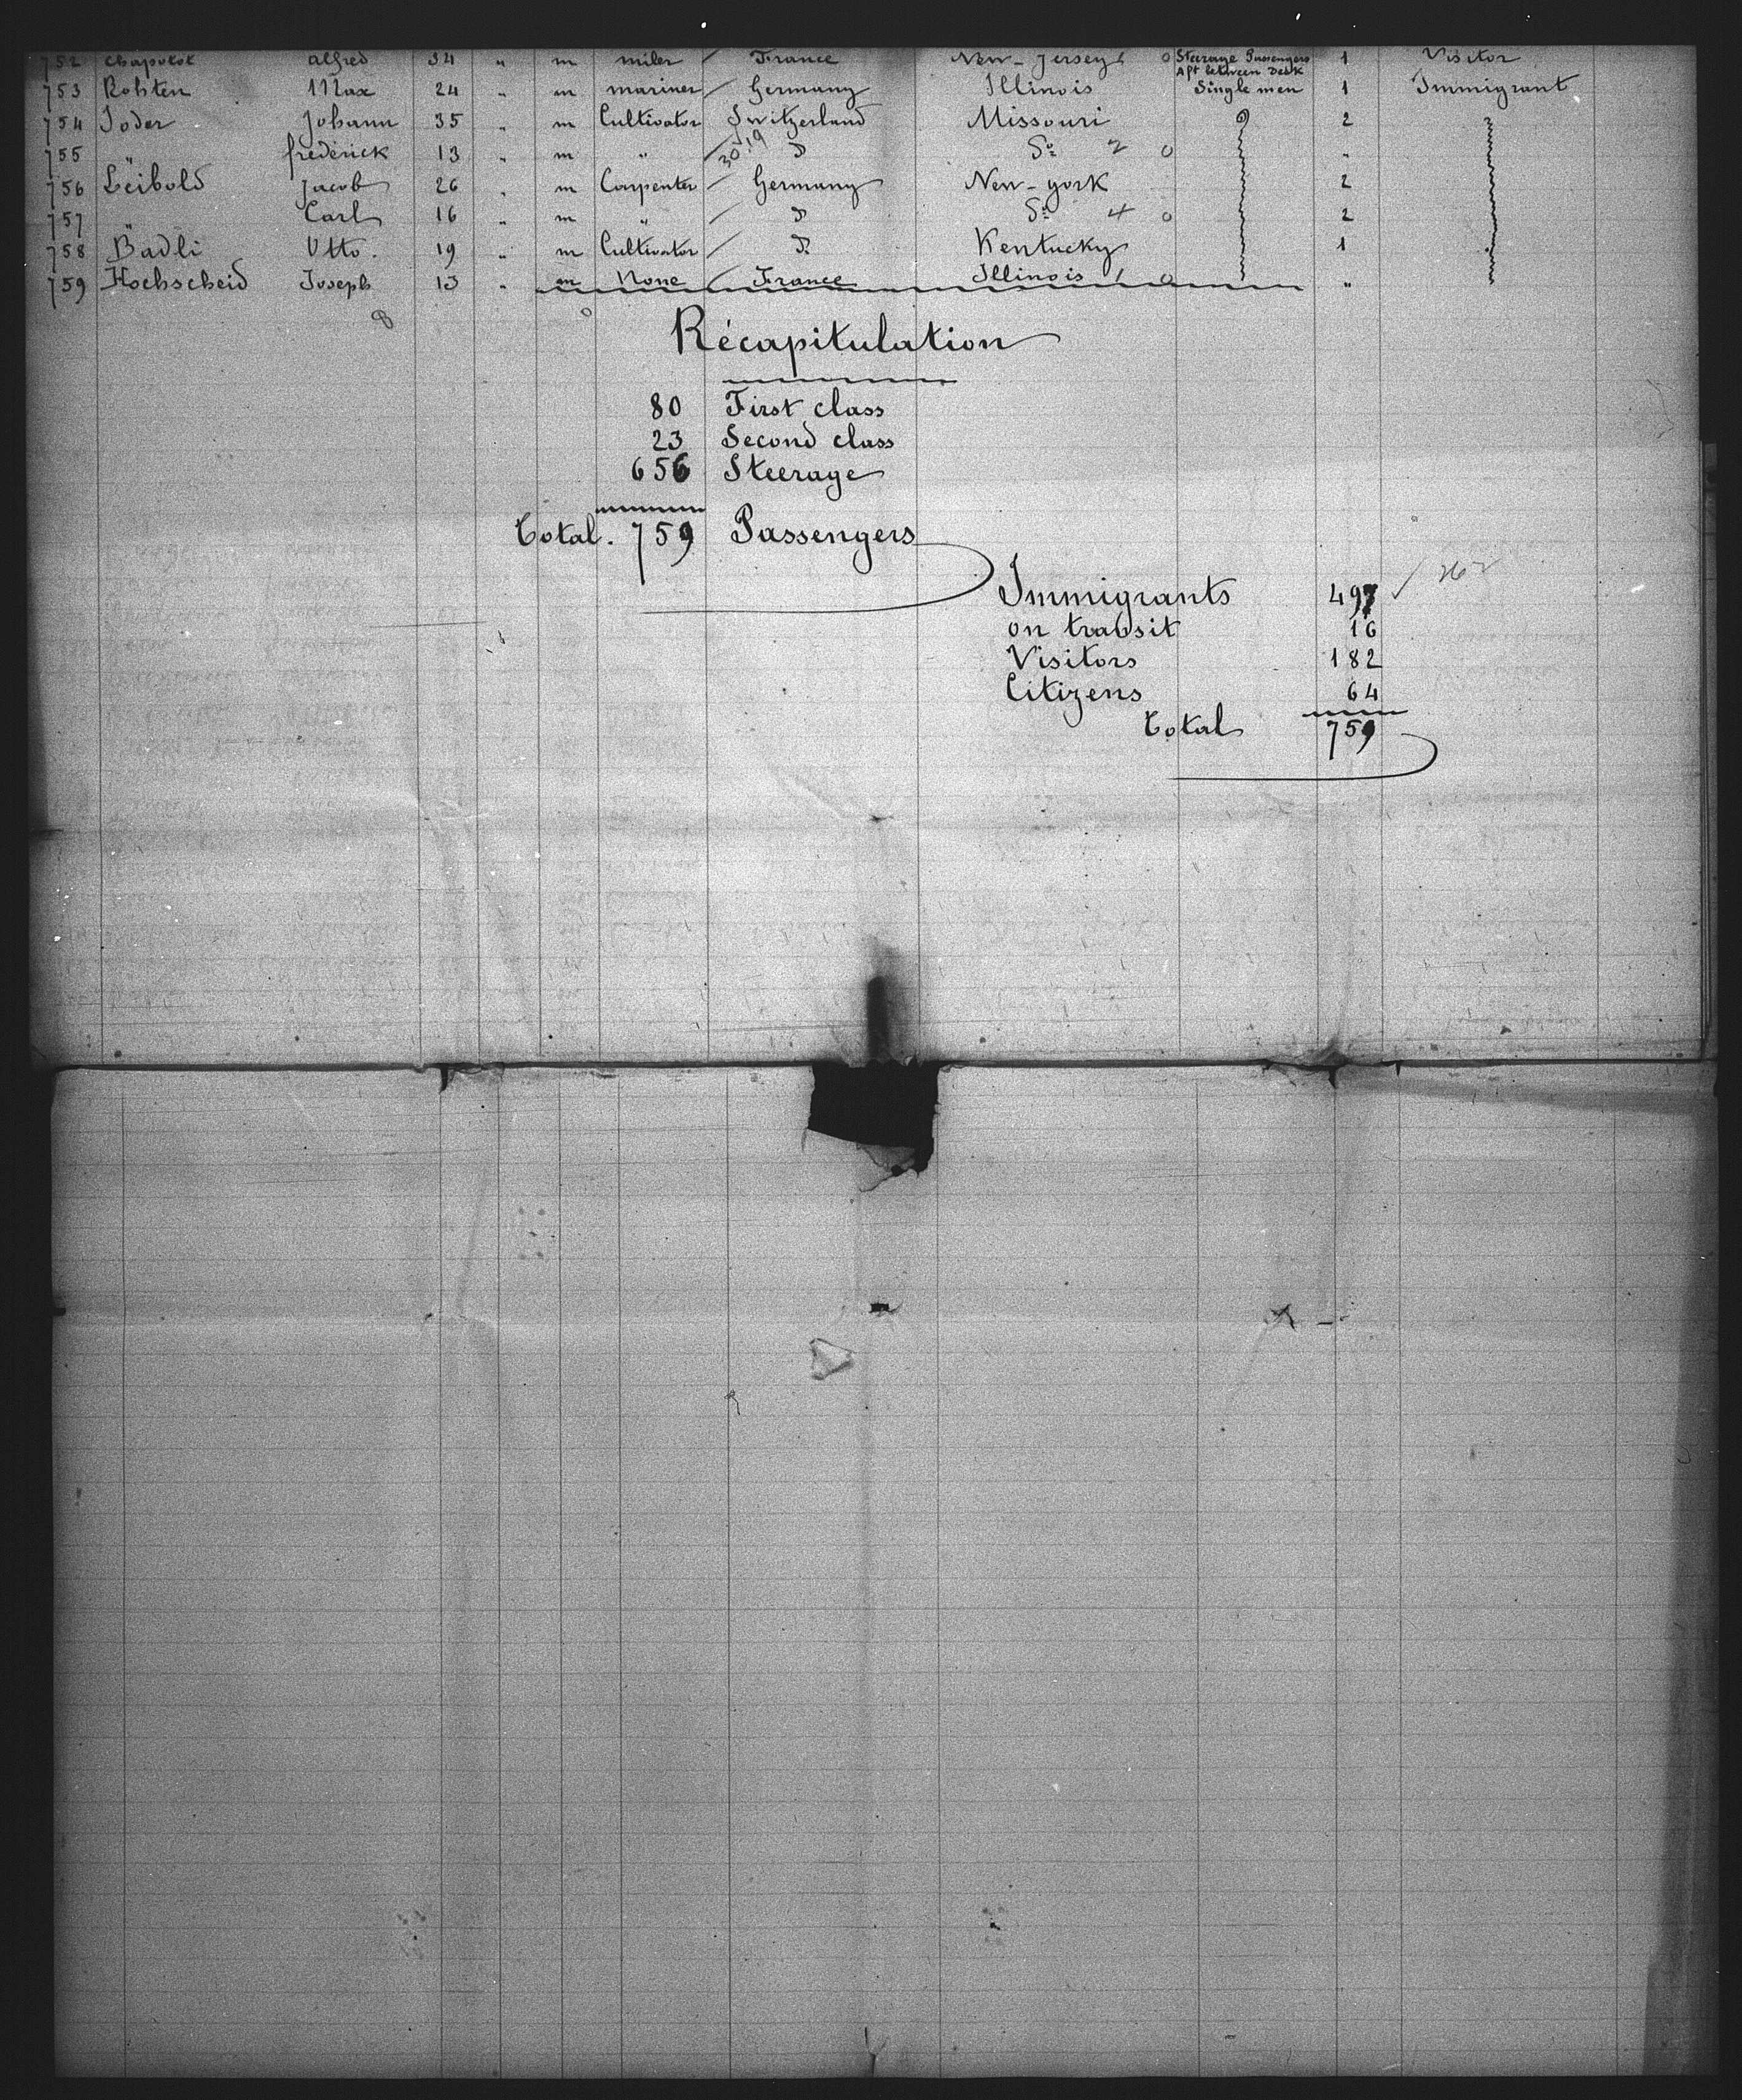 752 Chaputot Alfred 34 " m miler / France New-Jersey 0 Steerage Passengers 1 Visitor
Aft between Deck
753 Rohten Max 24 " m mariner / Germany Illinois Single men 1 Immigrant
754 Joder Johann 35 " m Cultivator Switzerland Missouri 2
755 " frederick 13 " m " / 30.19 D° D° 2 0 "
756 Leibold Jacob 26 " m Carpenter / Germany New-york 2
757 " Carl 16 " m " / D° D° 4 0 2
758 Badli Otto. 19 " m Cultivator / D° Kentucky 1
759 Hochscheid Joseph 13 " m None / France Illinois 1 0 "
Récapitulation
80 First class
23 Second class
656 Steerage
Total. 759 Passengers
Immigrants 497 / 262
on transit 16
Visitors 182
Citizens 64
Total 759